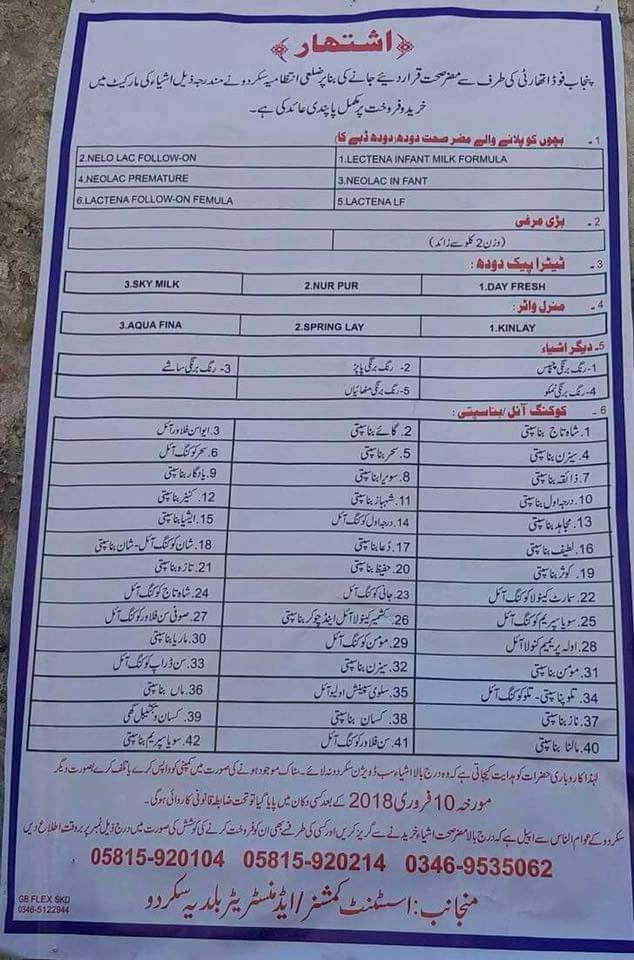 اشتہار
پنجاب فوڈ اتھارٹی کی طرف سے مضر صحت قرار دیئے جانے کی بنا پر ضلعی انتظامیہ سکردو نے مندرجہ ذیل اشیاء کی مارکیٹ میں
خرید و فروخت پر مکمل پابندی عائد کی ہے۔
1 - بچوں کو پلانے والے مضر صحت دودھ (دودھ ڈبے کا)
1.LECTENA INFANT MILK FORMULA 2.NELO LAC FOLLOW-ON
3.NEOLAC IN FANT 4.NEOLAC PREMATURE
5.LACTENA LF 6.LACTENA FOLLOW-ON FEMULA
2 - بڑی مرغی
(وزن 2 کلو سے زائد)
3 - ٹیٹرا پیک دودھ:
1.DAY FRESH 2.NUR PUR 3.SKY MILK
4 - منرل واٹر:
1.KINLAY 2.SPRING LAY 3.AQUA FINA
5- دیگر اشیاء
1- رنگ برنگی چپس 2- رنگ برنگی پاپڑ 3- رنگ برنگی ساشے
4- رنگ برنگی نمکو 5- رنگ برنگی مٹھائیاں
6 - کوکنگ آئل / بناسپتی:
1. شاہ تاج بناسپتی 2. گائے بناسپتی 3. ایوا سن فلاور آئل
4. سیزن بناسپتی 5. سحر بناسپتی 6. سحر کوکنگ آئل
7. ذائقہ بناسپتی 8. سویرا بناسپتی 9. یادگار بناسپتی
10. درجہ اول بناسپتی 11. شہباز بناسپتی 12. کنٹیز بناسپتی
13. مجاہد بناسپتی 14. درجہ اول کوکنگ آئل 15. ایشیا بناسپتی
16. لطیف بناسپتی 17. دعا بناسپتی 18. شان کوکنگ آئل - شان بناسپتی
19. کوثر بناسپتی 20. حفیظ بناسپتی 21. تازہ بناسپتی
22. سمارٹ کینولا کوکنگ آئل 23. جانی کوکنگ آئل 24. شاہ تاج کوکنگ آئل
25. سویا سپریم کوکنگ آئل 26. کشمیر کینولا آئل اینڈ چوکر بناسپتی 27. صوفی سن فلاور کوکنگ آئل
28. اولہ پریمیم کنولا آئل 29. مومن کوکنگ آئل 30. ماریا بناسپتی
31. مومن بناسپتی 32. سیزن بناسپتی 33. سن ڈراپ کوکنگ آئل
34. تلو بناسپتی - تلو کوکنگ آئل 35. سلوی سپینش اولیو آئل 36. ماں بناسپتی
37. ناز بناسپتی 38. کسان بناسپتی 39. کسان ویجٹیبل گھی
40. مالٹا بناسپتی 41. سن فلاور کوکنگ آئل 42. سویا سپریم بناسپتی
لہٰذا کاروباری حضرات کو ہدایت کیجاتی ہے کہ وہ درج بالا اشیاء سب ڈویژن سکردو نہ لائے۔ سٹاک موجود ہونے کی صورت میں کمپنی کو واپس کرے یا تلف کرے بصورت دیگر
مورخہ 10 فروری 2018 کے بعد کسی دکان میں پایا گیا تو تحت ضابطہ قانونی کاروائی ہوگی۔
سکردو کے عوام الناس سے اپیل ہے کہ درج بالا مضر صحت اشیاء خریدنے سے گریز کریں اور کسی کی طرف سے بھی ان کو فروخت کرنے کی کوشش کی صورت میں درج ذیل نمبر پر بروقت اطلاع دیں
05815-920104 05815-920214 0346-9535062
منجانب: اسسٹنٹ کمشنر / ایڈمنسٹریٹر بلدیہ سکردو
GB FLEX SKD
0346-5122944